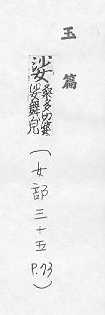 玉篇
娑桑多切婆娑舞皃
(女部三十五 P.73)